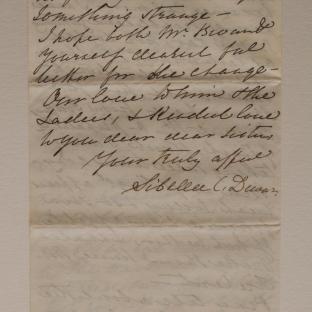 something strange –
I hope both Mr. Bevan &
yourself dearest feel
better for the change –
Our love to him & the
Ladies, & kindest love
to you dear dear Sister
Your truly affec
C.